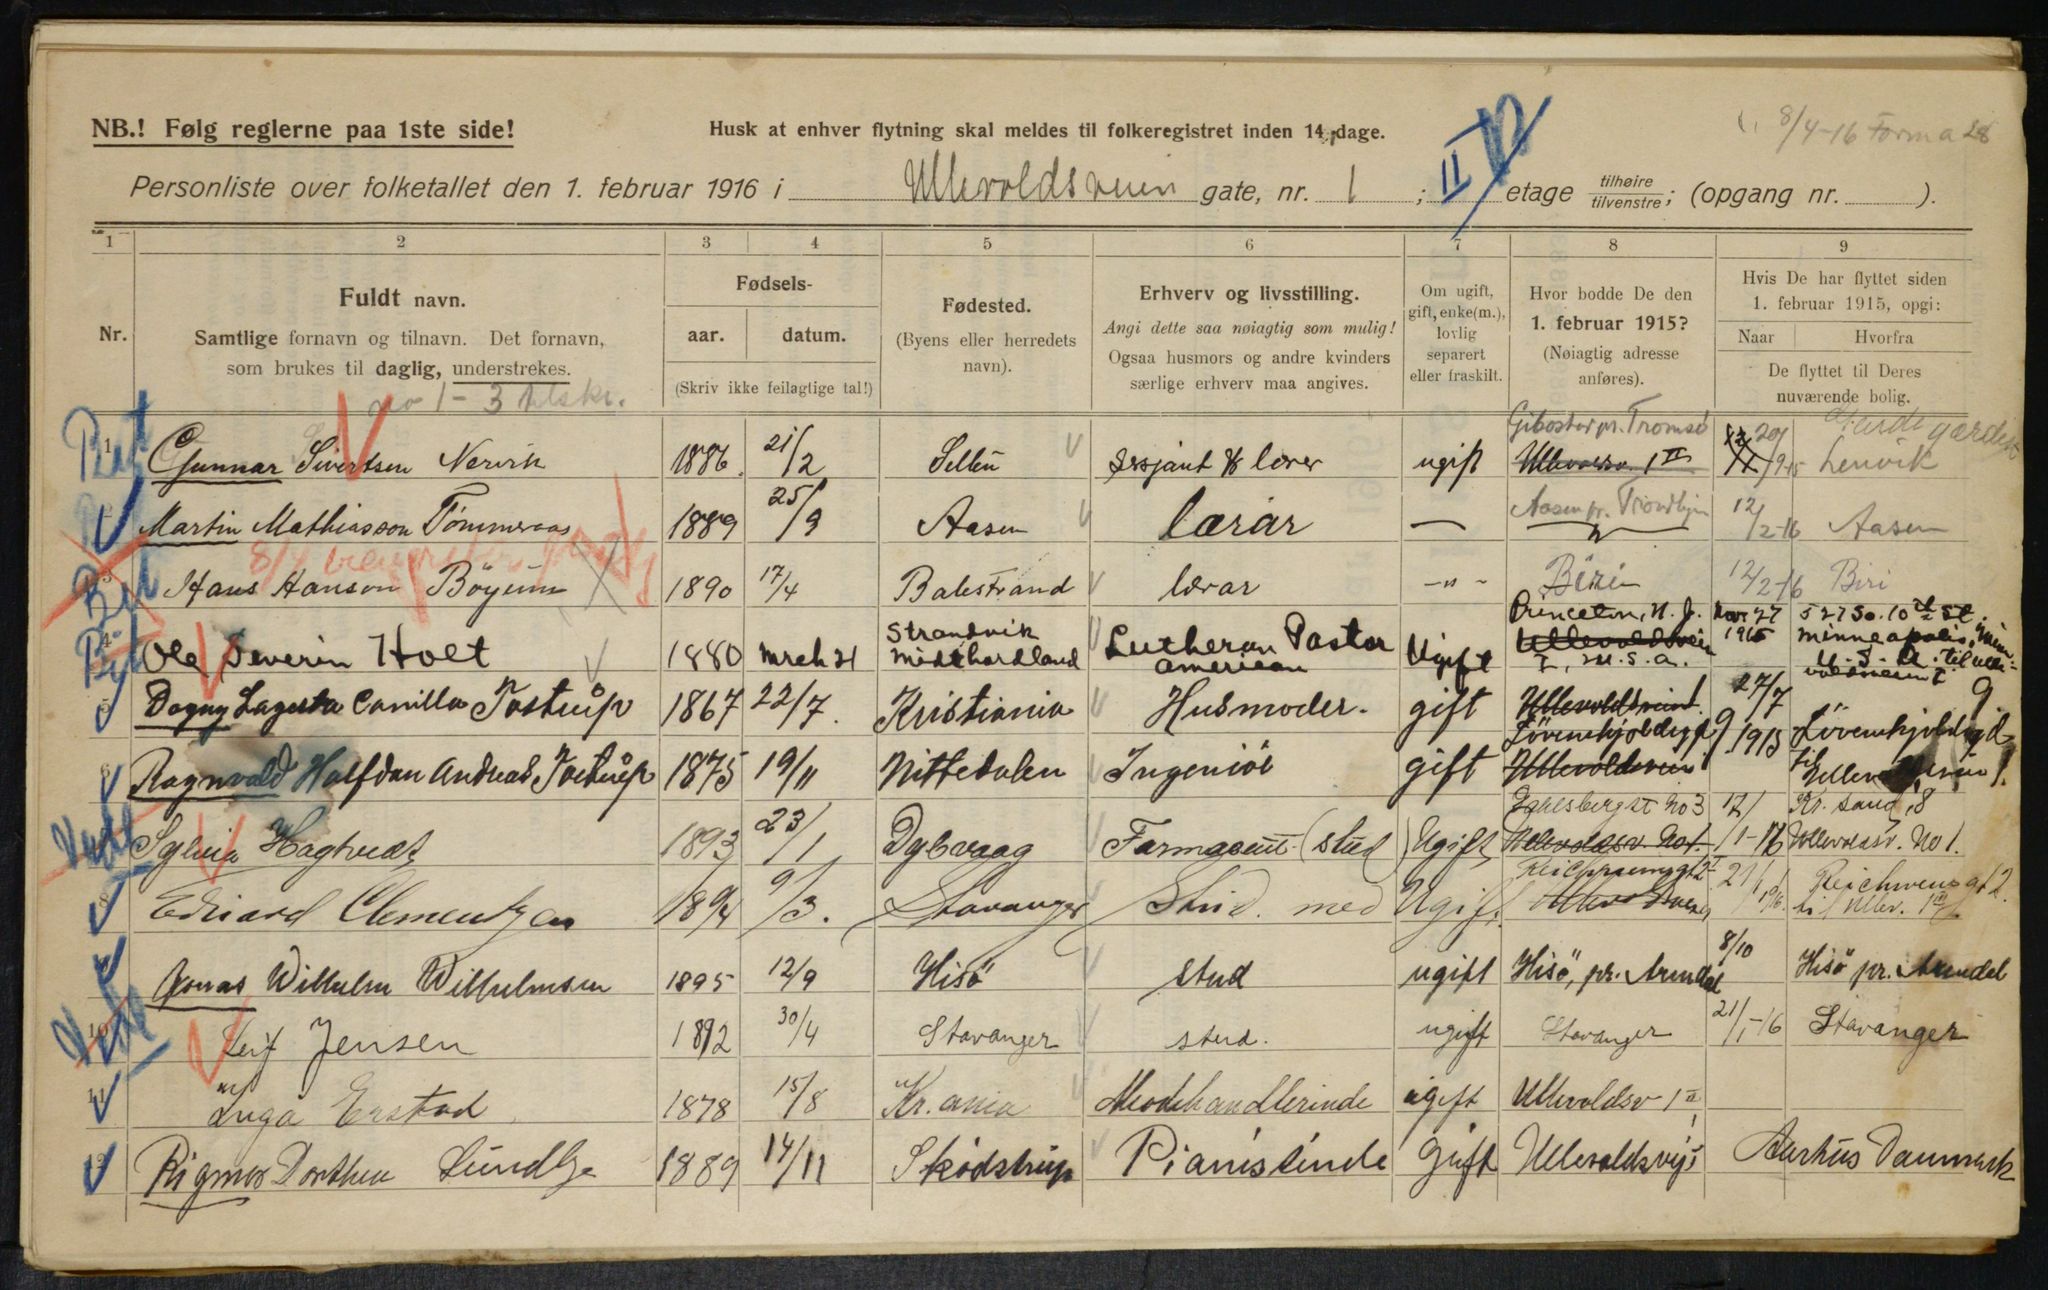 NB.! Følg reglerne paa 1ste side!
Husk at enhver flytning skal meldes til folkeregistret inden 14 dage.
8/4-16 Forma 28
Personliste over folketallet den 1. februar 1916 i Ullevoldsveien gate, nr. 1 ; II etage tilhøire/tilvenstre; (opgang nr. ).
1 2 3 4 5 6 7 8 9
Nr.
Fuldt navn.
Samtlige fornavn og tilnavn. Det fornavn,
som brukes til daglig, understrekes.
Fødsels-
aar. datum.
(Skriv ikke feilagtige tal!)
Fødested.
(Byens eller herredets
navn).
Erhverv og livsstilling.
Angi dette saa nøiagtig som mulig!
Ogsaa husmors og andre kvinders
særlige erhverv maa angives.
Om ugift,
gift, enke(m.),
lovlig
separert
eller fraskilt.
Hvor bodde De den
1. februar 1915?
(Nøiagtig adresse
anføres).
Hvis De har flyttet siden
1. februar 1915, opgi:
Naar Hvorfra
De flyttet til Deres
nuværende bolig.
no 1 - 3 tilskr.
1 Gunnar Sivertsen Nervik 1886 21/2 Selbu Sersjant & lærer ugift Gibostad pr. Tromsø Ullevoldsv. 1 II Lenvik
2 Martin Mathiasson Tömmeraas 1889 25/9 Aasen lærar — Aasen pr. Trondhjem 12/2-16 Aasen
3 Hans Hanson Böyum 1890 17/4 Balestrand lærar -"- Biri 12/2-16 Biri
4 Ole Severin Holt 1880 Mrch 21 Strandvik Midthordland Lutheran Pastor American Ugift Princeton, N. J. U.S.A. Nov 27 1915 527 So. 10th St. Minneapolis, Minn. U.S.A. til Ullevoldsveien 1
5 Dagny Lagerta Camilla Tostrup 1867 22/7 Kristiania Husmoder. gift Ullevoldsveien 1. Lövenskjoldsgt 9 27/7 1915 Lövenskjoldsgd 9
6 Ragnvald Halfdan Andreas Tostrup 1875 19/11 Nittedalen Ingeniör gift Ullevoldsveien til Ullevoldsveien 1.
7 Sylvia Hagtvedt 1893 23/1 Dybvaag Farmaceut (stud) Ugift Ullevoldsv. No 1. 12/1-16 Kr.sand, Ullevoldsv. No 1.
8 Edvard Clementsen 1894 9/3. Stavanger Stud. med Ugift. Reichweinsgt 2 Ullevoldsveien 21/1 1916 Reichweinsgt 2. til Ullev. 1 III
9 Jonas Wilhelm Wilhelmsen 1895 12/9 Hisö stud ugift Hisö, pr. Arendal 8/10 Hisö pr. Arendal
10 Leif Jensen 1892 30/4 Stavanger stud. ugift Stavanger 21/1-16 Stavanger
11 Inga Erstad 1878 15/8 Kr.ania Modehandlerinde ugift Ullevoldsv 1 II
12 Rigmor Dorthea Lundbye 1889 14/11 Sködstrup Pianistinde Gift Ullevoldsvj 1 Aarhus Danmark